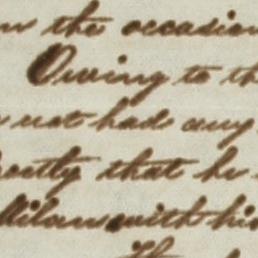 the occasion
Owing to th
not had any
that he
with hi